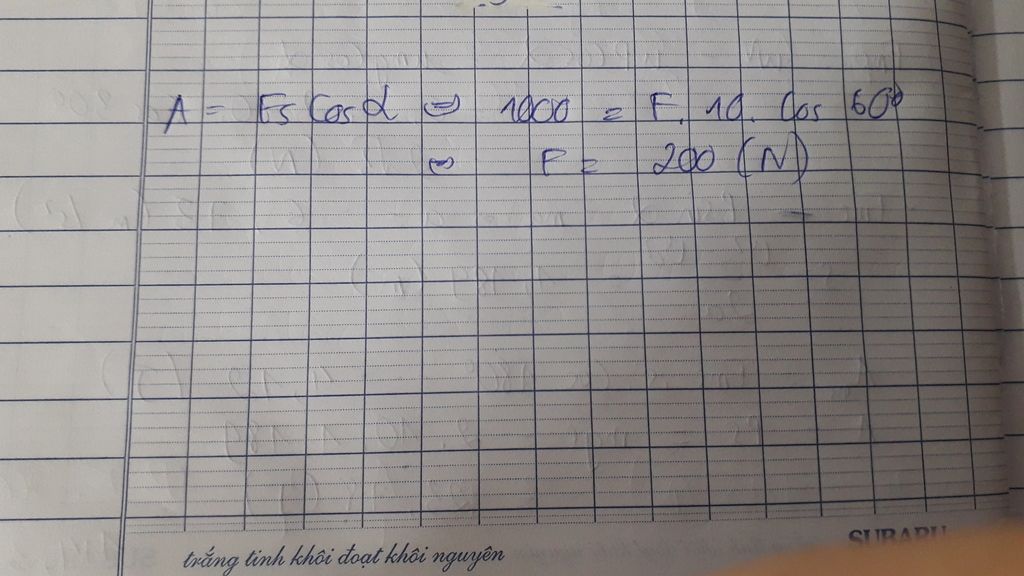 A = Fs cos α ⇔ 1000 = F. 10. cos 60°
⇔ F = 200 (N)
trắng tinh khôi đoạt khôi nguyên
SUBARU